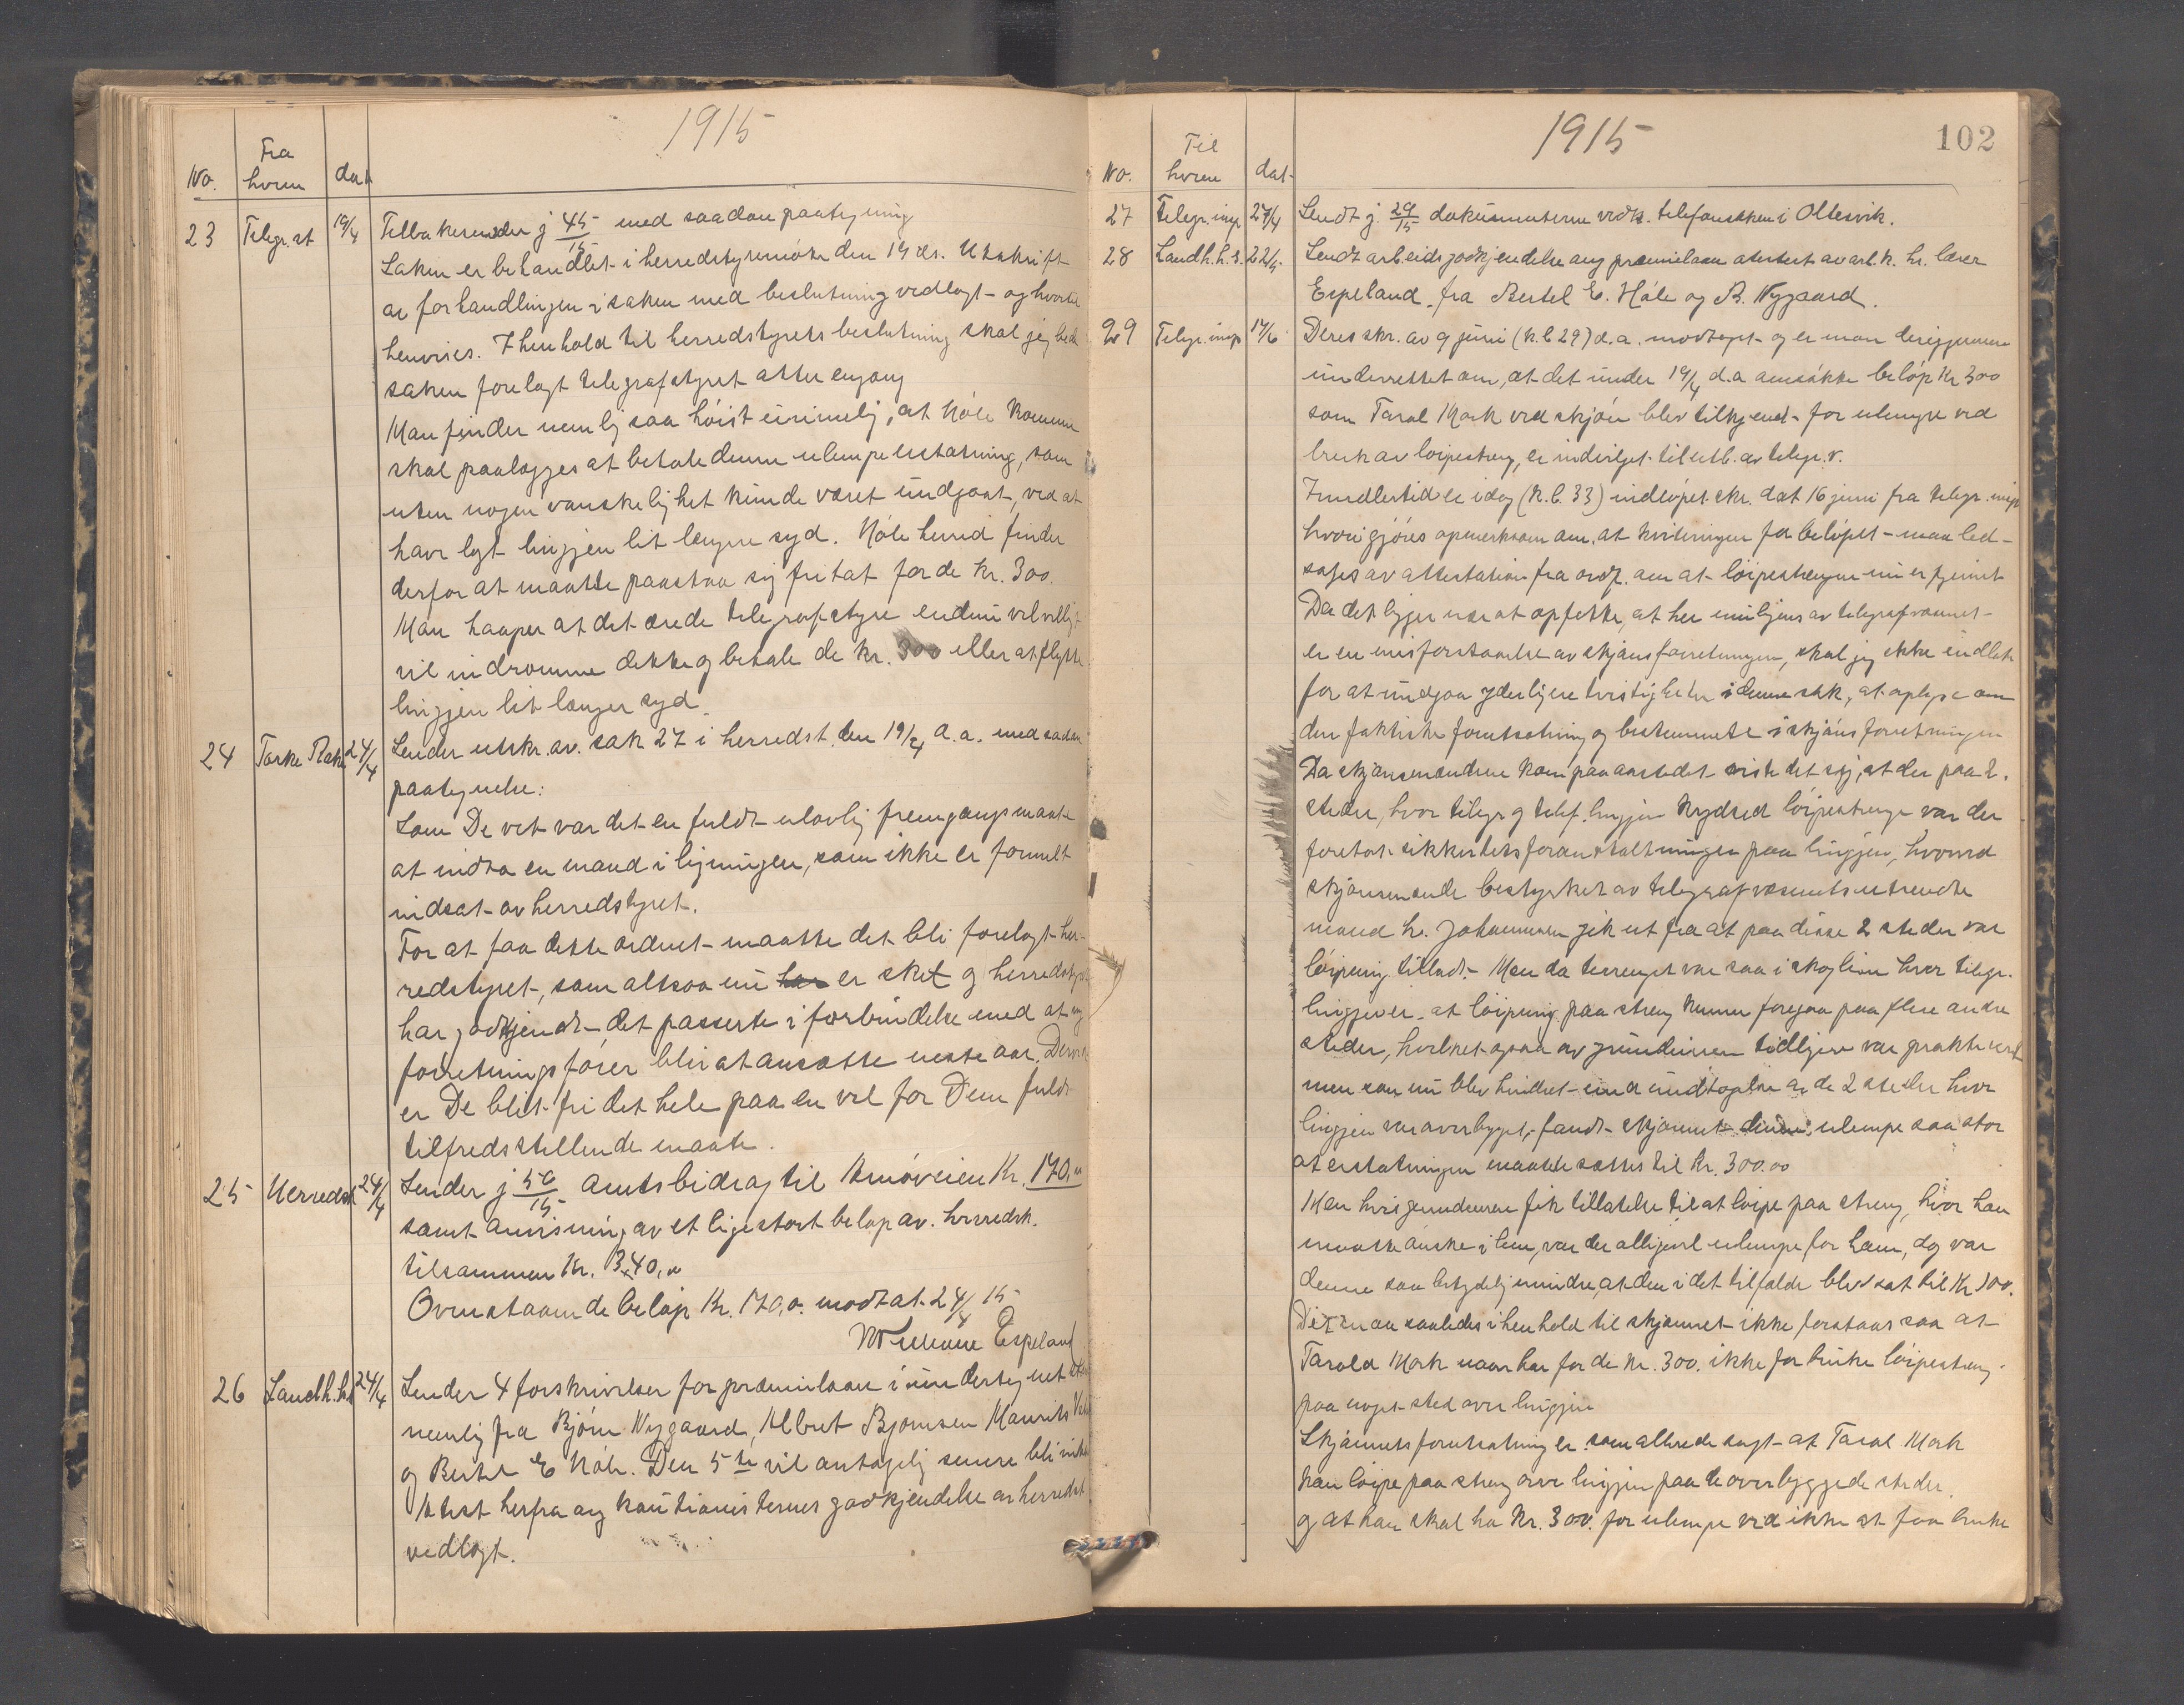 1915
No. Fra hvem dat
23 Telegr. st 19/4 Tilbakesender j 45/15 med saadan paategning
Saken er behandlet i herredstyremøte den 19 ds. Utskrift
av forhandlingen i saken med beslutning vedlagt og hvortil
henvises. I henhold til herredstyrets beslutning skal jeg bede
saken forelagt telegrafstyret atter engang
Man finder nemlig saa høist urimelig, at Høle Kommune
skal paalægges at betale denne ulempeerstatning, som
uten nogen vanskelighet kunde været undgaat, ved at
have lagt linjen lit længre syd. Høle herred finder
derfor at maatte paastaa sig fritat for de kr. 300.
Man haaper at det ærede telegrafstyre endnu velvilligt
vil indrømme dette og betale de kr. 300 eller at flytte
linjen lit længer syd.
24 Torke 24/4 Sender utskr. av sak 27 i herredst. den 19/4 d.a. med sadan
paategnelse:
Som De vet var det en fuldt ulovlig fremgangsmaate
at indta en mand i ligningen, som ikke er formelt
indsat av herredstyret.
For at faa dette ordnet maatte det bli forelagt her-
redstyret, som altsaa nu har er sket og herredstyret
har godkjendt det passerte i forbindelse med at ny
forretningsfører blir at ansætte neste aar. Derved
er De blit fri det hele paa en vel for Dem fuldt
tilfredsstillende maate.
25 Herredsk 24/4 Sender j 50/15 amtsbidrag til veien Kr. 170,"
samt anvisning av et ligestort beløp av. herredsk.
tilsammen Kr. 340,"
Ovenstaaende beløp Kr. 170,0. modtat 24/4 15
Espeland
26 Landh.h.s 24/4 Sender 4 forskrivelser for præmielaan i undertegnet stand
nemlig fra Bjørn Nygaard, Albret Bjørnsen Maurits
og Bertel E Høle. Den 5te vil antagelig senere bli indsendt
Attest herfra ang kautionisternes godkjendelse av herredst
vedlagt.
1915
102
No. Til hvem dat.
27 Telegr. insp 27/4 Sendt j. 29/15 dokumenterne vedk. telefonsaken i Oltesvik.
28 Landh.h.s. 22/5. Sendt arbeidsgodkjendelse ang præmielaan atestert av arb.k. hr. lærer
Espeland fra Bertel E. Høle og B. Nygaard.
29 Telegr. insp 17/6 Deres skr. av 9 juni (k.b 29) d.a. modtaget og er man derigjennem
underrettet om, at det under 19/4 d.a ansøkte beløp Kr 300
som Tarol Mork ved skjøn blev tilkjend for ulempe ved
bruk av løipestreng, er indvilget til utb. av telegr.v.
Imidlertid er idag (k.b. 33) indløpet skr. dat 16 juni fra telegr. insp
hvori gjøres opmerksom om, at kvitteringen for beløpet maa led-
sages av attestation fra ordf. om at løipestrengen nu er fjernet
Da det ligger nær at opfatte, at her muligens av telegrafvæsenet
er en misforstaaelse av skjønsforretningen, skal jeg ikke undlate
for at undgaa yderligere tvistigheter i denne sak, at oplyse om
den faktiske forutsætning og bestemmelse i skjønsforretningen
Da skjønsmændene kom paa aastedet viste det sig, at der paa 2.
steder, hvor telegr og telef. linjen krydset løipestrenge var der
foretat sikkerhetsforanstaltninger paa linjen, hvorved
skjønsmændene bestyrket av telegrafvæsenets utsendte
mand hr. Johannesen gik ut fra at paa disse 2 steder var
løiping tilladt. Men da terrænget var saa i skoglien hvor telegr.
linjen er at løiping paa streng kunne foregaa paa flere andre
steder, hvilket ogsaa av grundeieren tidligere var praktisert
men som nu blev hindret undtagen av de 2 steder hvor
linjen var overbygget, fandt skjønnet denne ulempe saa stor
at erstatningen maatte sættes til Kr. 300.00
Men hvis grundeieren fik tillatelse til at løipe paa streng, hvor han
maatte ønske i lien, var der alligevel ulempe for ham, dog var
denne saa betydelig mindre, at den i det tilfælde blev sat til Kr 100.
Det maa saaledes i henhold til skjønnet ikke forstaas saa at
Tarald Mork naar har for de kr. 300. ikke faa bruke løipestreng
paa noget sted over linjen
Skjønnets forutsætning er som allerede sagt at Tarol Mork
kan løipe paa streng over linjen paa de overbyggede steder.
og at han skal ha Kr. 300. for ulempe ved ikke at faa bruke